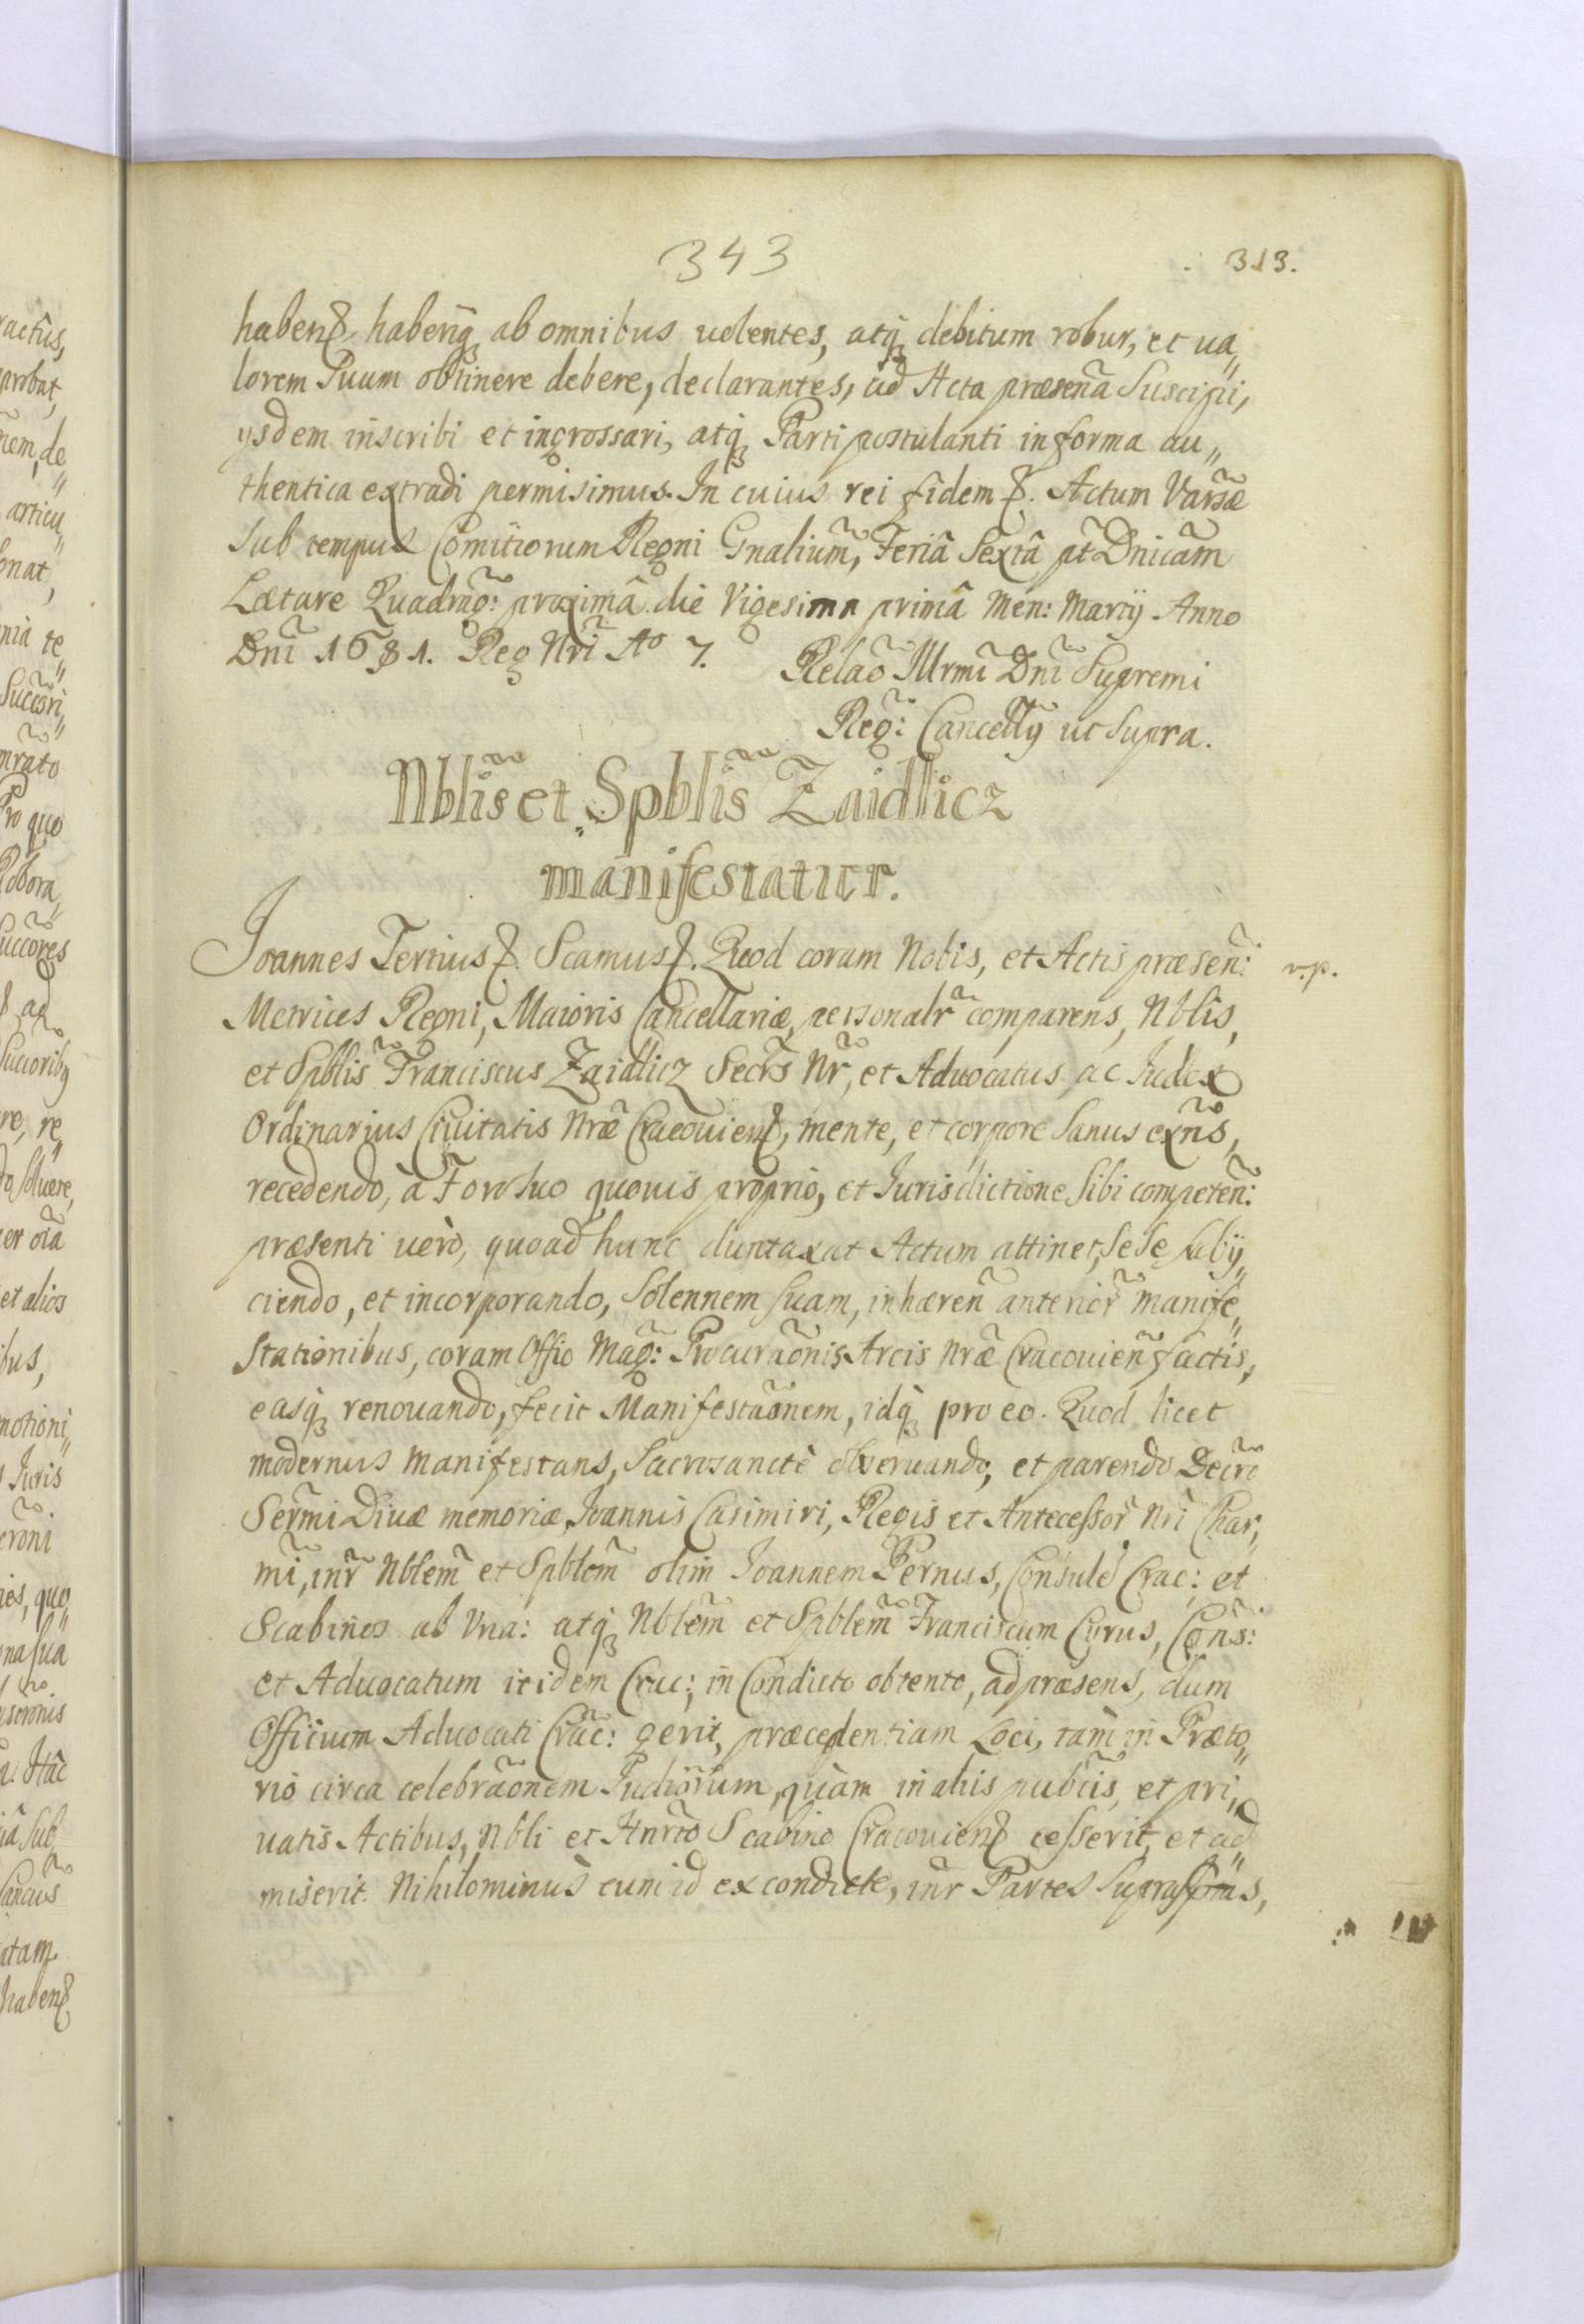 343
313.
habenꝭ, habeñq, ab omnibus uolentes, atq, debitum robur, et ua„
lorem Suum obtinere debere, declarantes, ad Acta præseña Suscipi,
ysdem inscribi et ingrossari, atq, Parti postulanti in forma au„
thentica extradi permisimus. In cuius rei fidem ꝭ. Actum Varsæ
Sub tempus Comitiorum Regni Gnalium, Feriâ Sextâ pt Dnicam
Lætare Quadrag̃: proximâ die Vigesima primâ Men: Martij Anno
Dni 1681. Reg Nri Ao 7.
Relaõ Illrmi Dni Supremi
Reg: Cancellÿ ut Supra.
Nblis et Spblis Zaidlicz
manifestatur.
Joannes Tertius ꝭ. Scamus ꝭ. Quod coram Nobis, et Actis præseñ:
v.p.
Metrices Regni, Maioris Cancellariæ, personalr comparens, Nblis,
et Spblis Franciscus Zaidlicz Secrs Nr, et Aduocatus, ac Iudex
Ordinarius Ciuitatis Nræ Cracouienꝭ, mente, et corpore Sanus exñs,
recedendo, à Foro Suo quouis proprio, et Iurisdictione Sibi competeñ:
præsenti uerò, quoad hunc duntaxat Actum attinet, Sese Subÿ„
ciendo, et incorporando, Solennem Suam, inhæreñ anterior Manife„
stationibus, coram Offio Mag: Procuraõnis Arcis Nræ Cracouieñ factis,
easq, renouando, fecit Manifestaõnem, idq, pro eo. Quod licet
modernus Manifestans, Sacrosanctè obseruando, et parendo Decro
Sermi Diuæ memoriæ Ioannis Casimiri, Regis et Antecessor Nri Char„
mi, inr Nblem et Spblem olim Ioannem Pernus, Consulẽ Crac: et
Scabinos ab Vna: atq, Nblem et Spblem Franciscum Cyrus, Cons:
et Aduocatum itidem Crac:, in Condicto obtento, ad præsens, dum
Officium Aduocati Crac: gerit, præcedentiam Loci, tam in Præto„
rio circa celebraõnem Iudiorum, quàm in aliis pubcis, et pri„
uatis Actibus, Nbli et Hnrto Scabino Cracouienꝭ cesserit, et ad„
miserit. Nihilominùs cum id ex condicto, inr Partes Suprassptas,